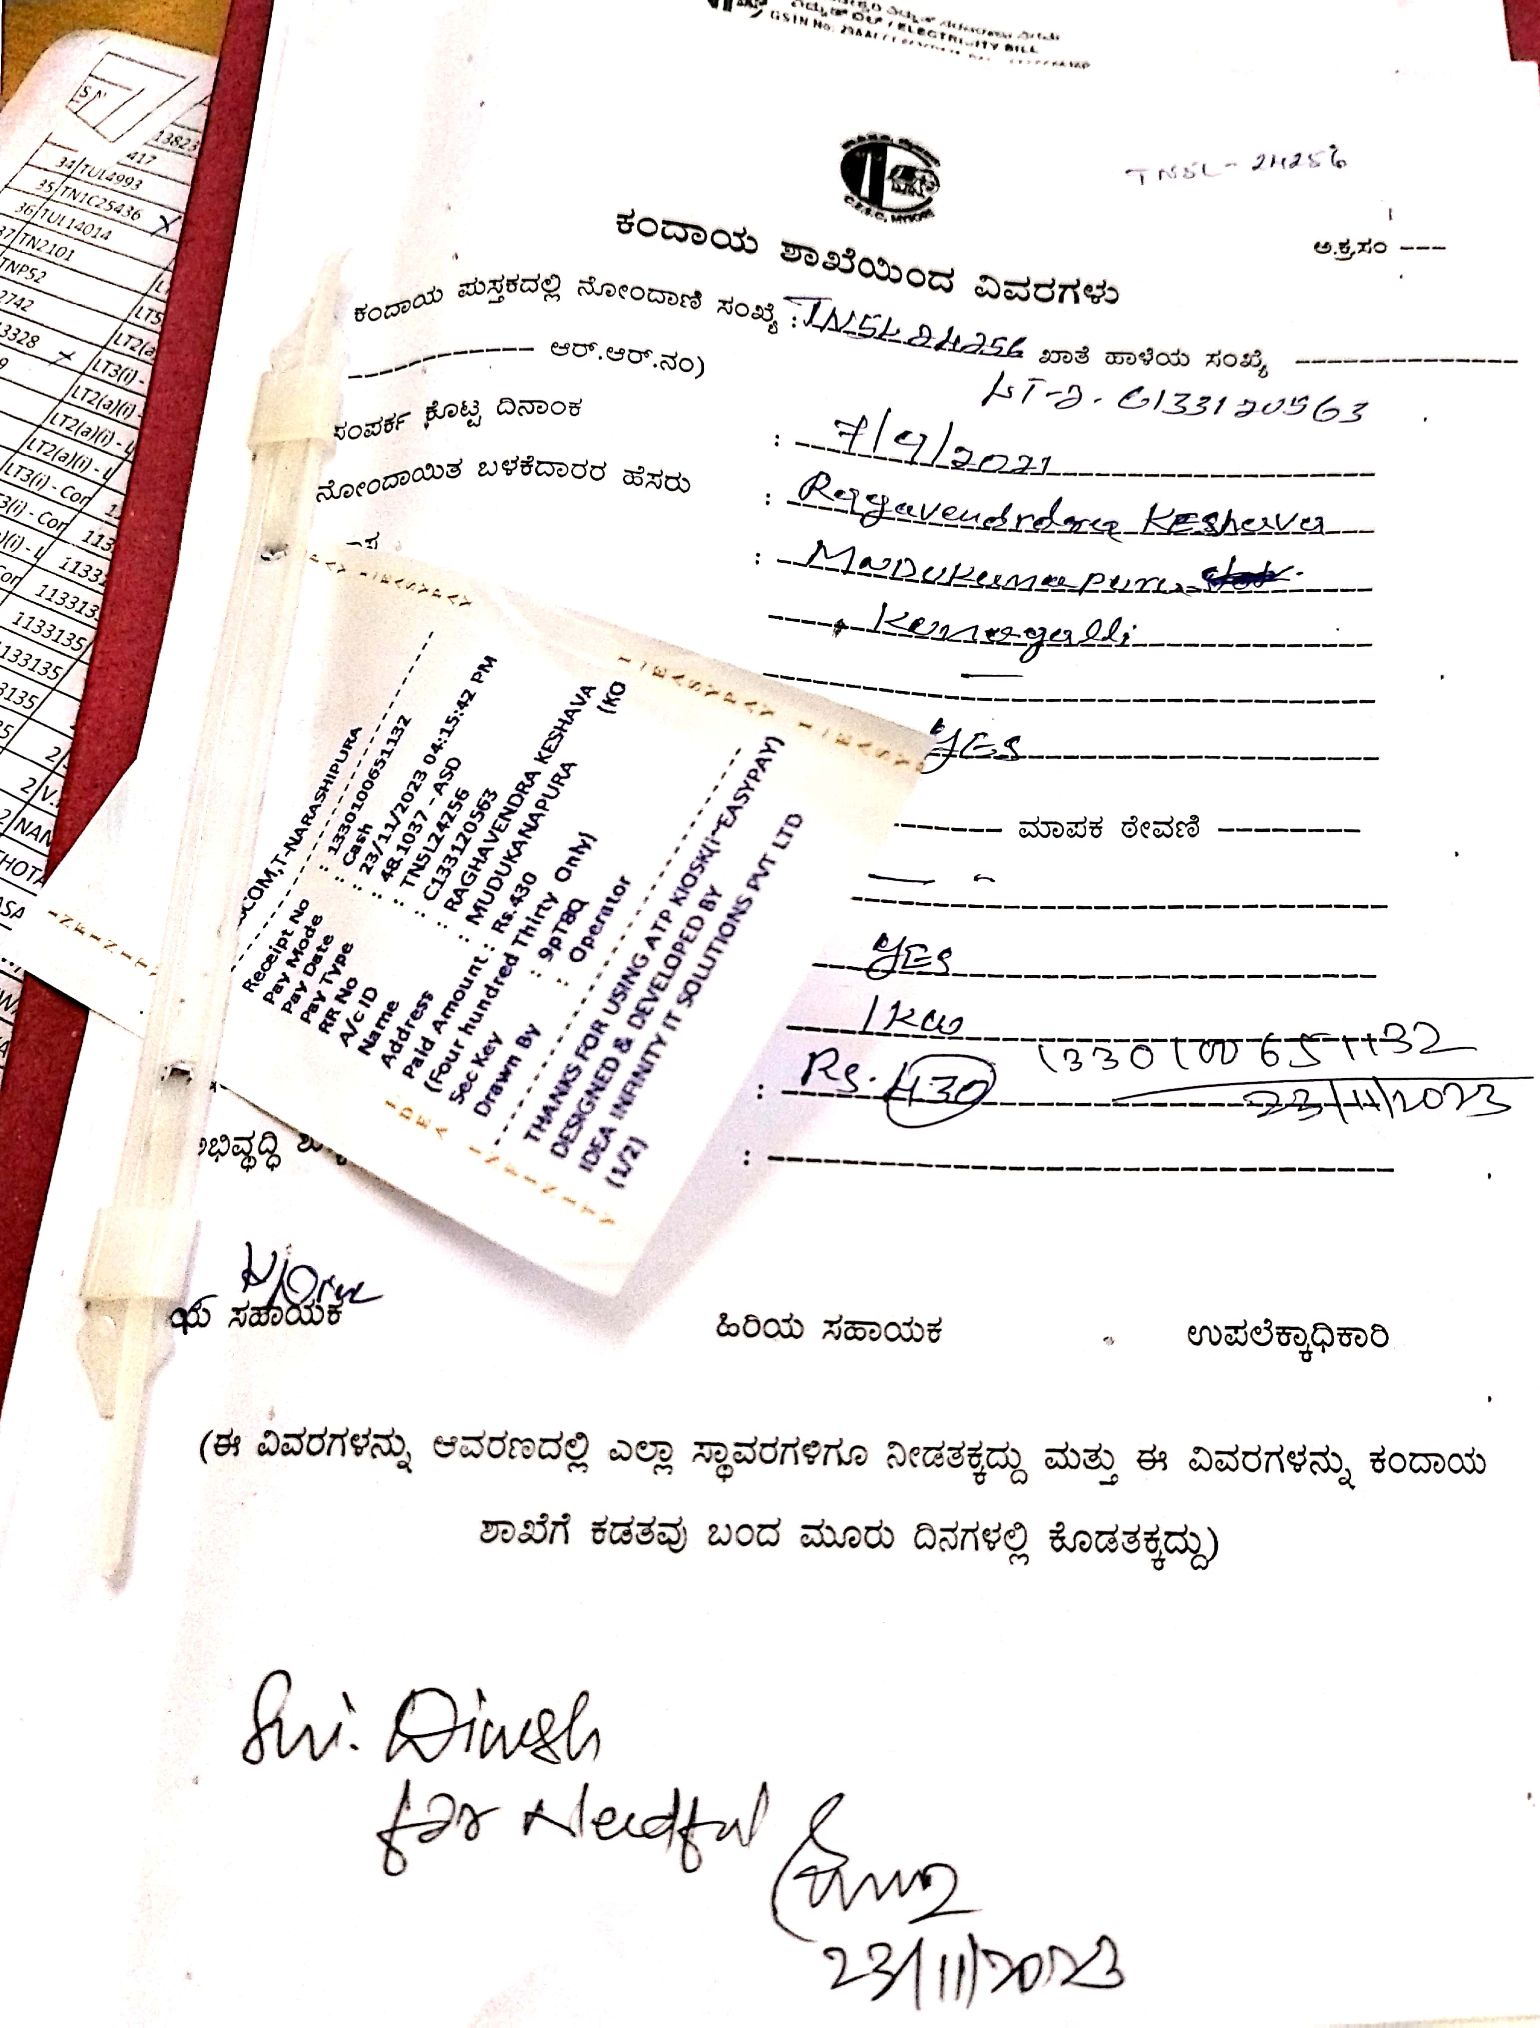 ವಿದ್ಯುತ್ ಬಿಲ್ / ELECTRICITY BILL
GSIN No.
C.E.S.C, MYSORE
TN5L-24256
ಅ.ಕ್ರ.ಸಂ ---
ಕಂದಾಯ ಶಾಖೆಯಿಂದ ವಿವರಗಳು
ಕಂದಾಯ ಪುಸ್ತಕದಲ್ಲಿ ನೋಂದಾಣಿ ಸಂಖ್ಯೆ : TN5L24256 ಖಾತೆ ಹಾಳೆಯ ಸಂಖ್ಯೆ
ಆರ್.ಆರ್.ನಂ)
LT-2. C133120563
ಸಂಪರ್ಕ ಕೊಟ್ಟ ದಿನಾಂಕ : 7/9/2021
ನೋಂದಾಯಿತ ಬಳಕೆದಾರರ ಹೆಸರು : Ragavendrdara KEShava
: MuDuKanapura
Kemagalli
YES
ಮಾಪಕ ಠೇವಣಿ
YES
1KW
: Rs. 430 1330100651132
23/11/2023
ಅಭಿವೃದ್ಧಿ
COM,T-NARASHIPURA
Receipt No : 1330100651132
Pay Mode : Cash
Pay Date : 23/11/2023 04:15:42 PM
Pay Type : 48.1037 - ASD
RR No : TN5L24256
A/c ID : C133120563
Name : RAGHAVENDRA KESHAVA
Address : MUDUKANAPURA (KO
Paid Amount : Rs.430
(Four hundred Thirty Only)
Sec Key : 9pTBQ
Drawn By : Operator
THANKS FOR USING ATP KIOSK(i~EASYPAY)
DESIGNED & DEVELOPED BY
IDEA INFINITY IT SOLUTIONS PVT LTD
(1/2)
ಯ ಸಹಾಯಕ ಹಿರಿಯ ಸಹಾಯಕ ಉಪಲೆಕ್ಕಾಧಿಕಾರಿ
(ಈ ವಿವರಗಳನ್ನು ಆವರಣದಲ್ಲಿ ಎಲ್ಲಾ ಸ್ಥಾವರಗಳಿಗೂ ನೀಡತಕ್ಕದ್ದು ಮತ್ತು ಈ ವಿವರಗಳನ್ನು ಕಂದಾಯ
ಶಾಖೆಗೆ ಕಡತವು ಬಂದ ಮೂರು ದಿನಗಳಲ್ಲಿ ಕೊಡತಕ್ಕದ್ದು)
Sri. Dinesh
for Needful
23/11/2023
34 TUL4993
35 TN1C25436
36 TUL14014
37 TN2101
TNP52
2742
3328